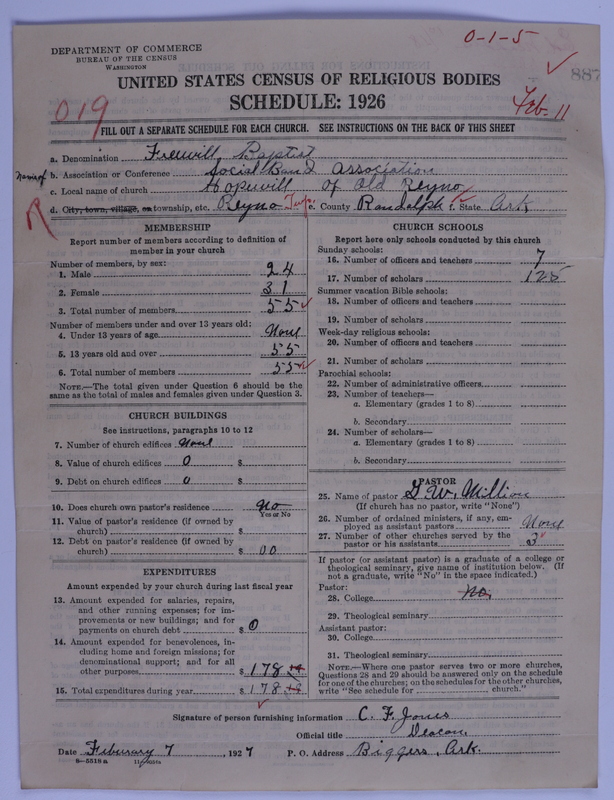 0-1-5
DEPARTMENT OF COMMERCE
BUREAU OF THE CENSUS
WASHINGTON
887
UNITED STATES CENSUS OF RELIGIOUS BODIES
SCHEDULE: 1926
019
Feb. 11
FILL OUT A SEPARATE SCHEDULE FOR EACH CHURCH. SEE INSTRUCTIONS ON THE BACK OF THIS SHEET
a. Denomination Freewill Baptist
Name of b. Association or Conference Social Band Association
c. Local name of church Hopewill of Old Reyno
R d. City, town, village, or township, etc. Reyno Twp. e. County Randolph f. State Ark
MEMBERSHIP
Report number of members according to definition of
member in your church
Number of members by sex:
1. Male 24
2. Female 31
3. Total number of members 55
Number of members under and over 13 years old:
4. Under 13 years of age None
5. 13 years old and over 55
6. Total number of members 55
NOTE.—The total given under Question 6 should be the
same as the total of males and females given under Question 3.
CHURCH BUILDINGS
See instructions, paragraphs 10 to 12
7. Number of church edifices None
8. Value of church edifices 0 $
9. Debt on church edifices 0 $
10. Does church own pastor's residence No
Yes or No
11. Value of pastor's residence (if owned by
church) $
12. Debt on pastor's residence (if owned by
church) $ 00
EXPENDITURES
Amount expended by your church during last fiscal year
13. Amount expended for salaries, repairs,
and other running expenses; for im-
provements or new buildings; and for
payments on church debt $ 0
14. Amount expended for benevolences, in-
cluding home and foreign missions; for
denominational support; and for all
other purposes $ 178
15. Total expenditures during year $ 178
CHURCH SCHOOLS
Report here only schools conducted by this church
Sunday schools:
16. Number of officers and teachers 7
17. Number of scholars 125
Summer vacation Bible schools:
18. Number of officers and teachers
19. Number of scholars
Week-day religious schools:
20. Number of officers and teachers
21. Number of scholars
Parochial schools:
22. Number of administrative officers
23. Number of teachers—
a. Elementary (grades 1 to 8)
b. Secondary
24. Number of scholars—
a. Elementary (grades 1 to 8)
b. Secondary
PASTOR
25. Name of pastor G. W. Million
(If church has no pastor, write "None")
26. Number of ordained ministers, if any, em-
ployed as assistant pastors None
27. Number of other churches served by the
pastor or his assistants 3
If pastor (or assistant pastor) is a graduate of a college or
theological seminary, give name of institution below. (If
not a graduate, write "No" in the space indicated.)
Pastor:
28. College No.
29. Theological seminary
Assistant pastor:
30. College
31. Theological seminary
NOTE.—Where one pastor serves two or more churches,
Questions 28 and 29 should be answered only on the schedule
for one of the churches; on the schedules for the other churches,
write "See schedule for church."
Signature of person furnishing information C. F. Jones
Official title Deacon
Date Feburary 7, 1927 P. O. Address Biggers, Ark.
8—5518 a